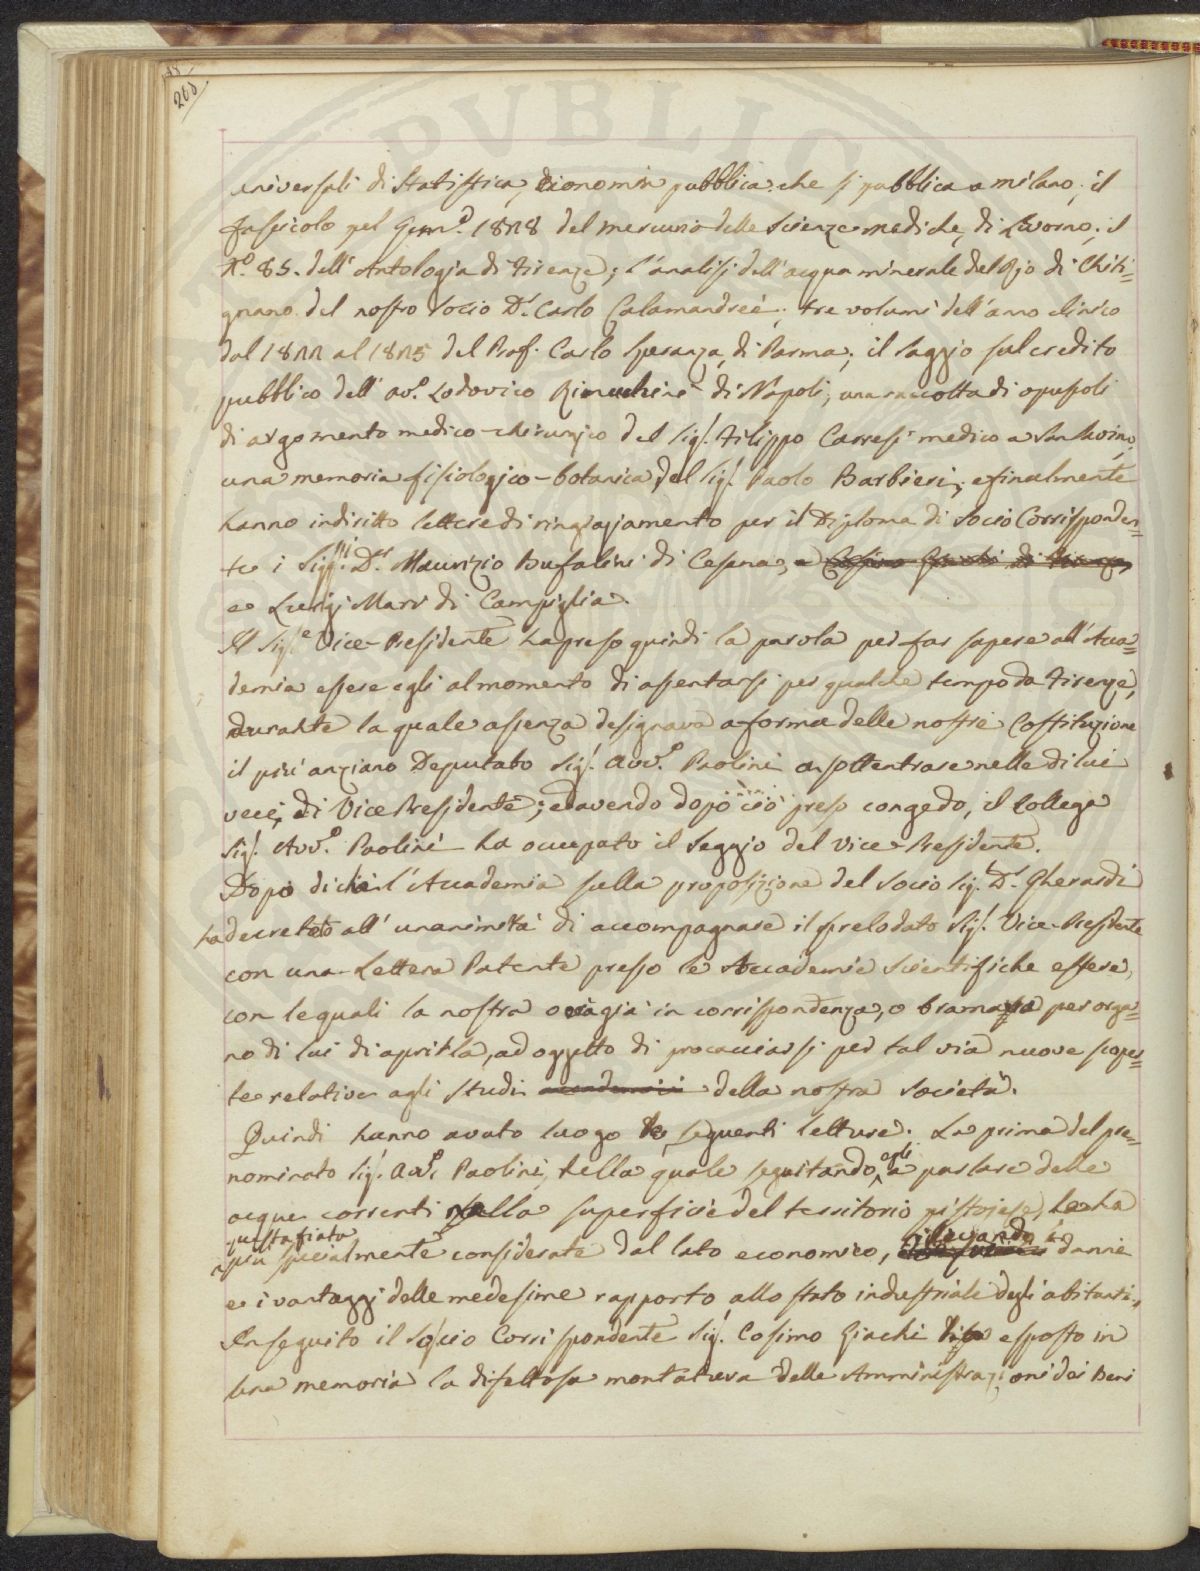 260
universali di Statistica, Economia pubblica che si pubblica a Milano; il
fascicolo pel Genn.º 1828 del mercurio delle scienze mediche, di Livorno; il
N.º 85. dell' Antologia di Firenze; l'analisi dell'acqua minerale del Rio di Chiti=
gnano del nostro socio D.r Carlo Calamandrei; tre volumi dell'anno clinico
dal 1822 al 1825 del Prof. Carlo Speranza, di Parma; il saggio sul credito
pubblico dell' av.º Lodovico Bianchini di Napoli; una raccolta di opuscoli
di argomento medico-chirurgico del Sig.r Filippo Carresi medico a San Savino;
una memoria fisiologico-botanica, del Sig.r Paolo Barbieri; e finalmente
hanno indiritto lettere di ringraziamento per il Diploma di Socio Corrisponden=
te i Sigg.ri D.r Maurizio Bufalini di Cesena, e
e Luigi Mari di Campiglia.
Il Sig.e Vice-Presidente ha preso quindi la parola per far sapere all'Acca=
demia essere egli al momento di assentarsi per qualche tempo da Firenze,
durante la quale assenza designava a forma delle nostre Costituzione
il più anziano Deputato Sig.r Avv.º Paolini a sottentrare nelle di lui
veci, di Vice Presidente; ed avendo dopo ciò preso congedo, il Collega
Sig.r Avv.º Paolini ha occupato il seggio del Vice-Presidente.
Dopo di chè l'Accademia sulla proposizione del socio Sig. D.r Gherardi
ha decretato all' unanimità di accompagnare il prelodato Sig.r Vice-Presidente
con una Lettera Patente presso le Accademie scientifiche estere,
con le quali la nostra o è già in corrispondenza, o brama per orga=
no di lui di aprirla, ad oggetto di procacciarsi per tal via nuove scoper=
te relative agli studi accademici della nostra società.
Quindi hanno avuto luogo le seguenti letture. La prima del pre=
nominato Sig.r Avv.º Paolini, nella quale seguitando egli a parlare delle
acque correnti sulla superficie del territorio pistojese, le ha
questa fiata
più specialmente considerate dal lato economico, rilevando i danni
e i vantaggi delle medesime rapporto allo stato industriale degli abitanti.
In seguito il Socio Corrispondente Sig.r Cosimo Giachi esposto in
una memoria la difettosa montatura delle Amministrazioni dei Beni